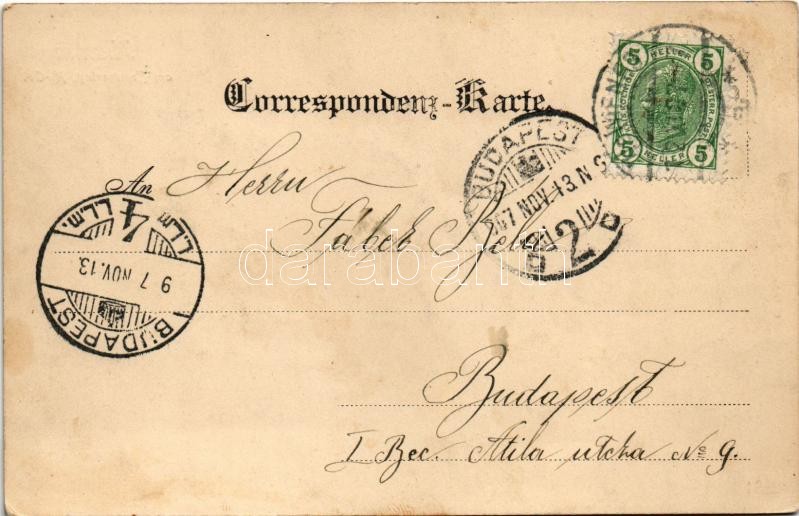 Correspondenz-Karte.
5 HELLER 5
5 HELLER 5
WIEN
BUDAPEST
907 NOV. 13 N
2
D
An Herrn
Faber Bela
4
BUDAPEST
9 7 NOV. 13.
darabanth
Budapest
I Bec. Atila utcza No 9.